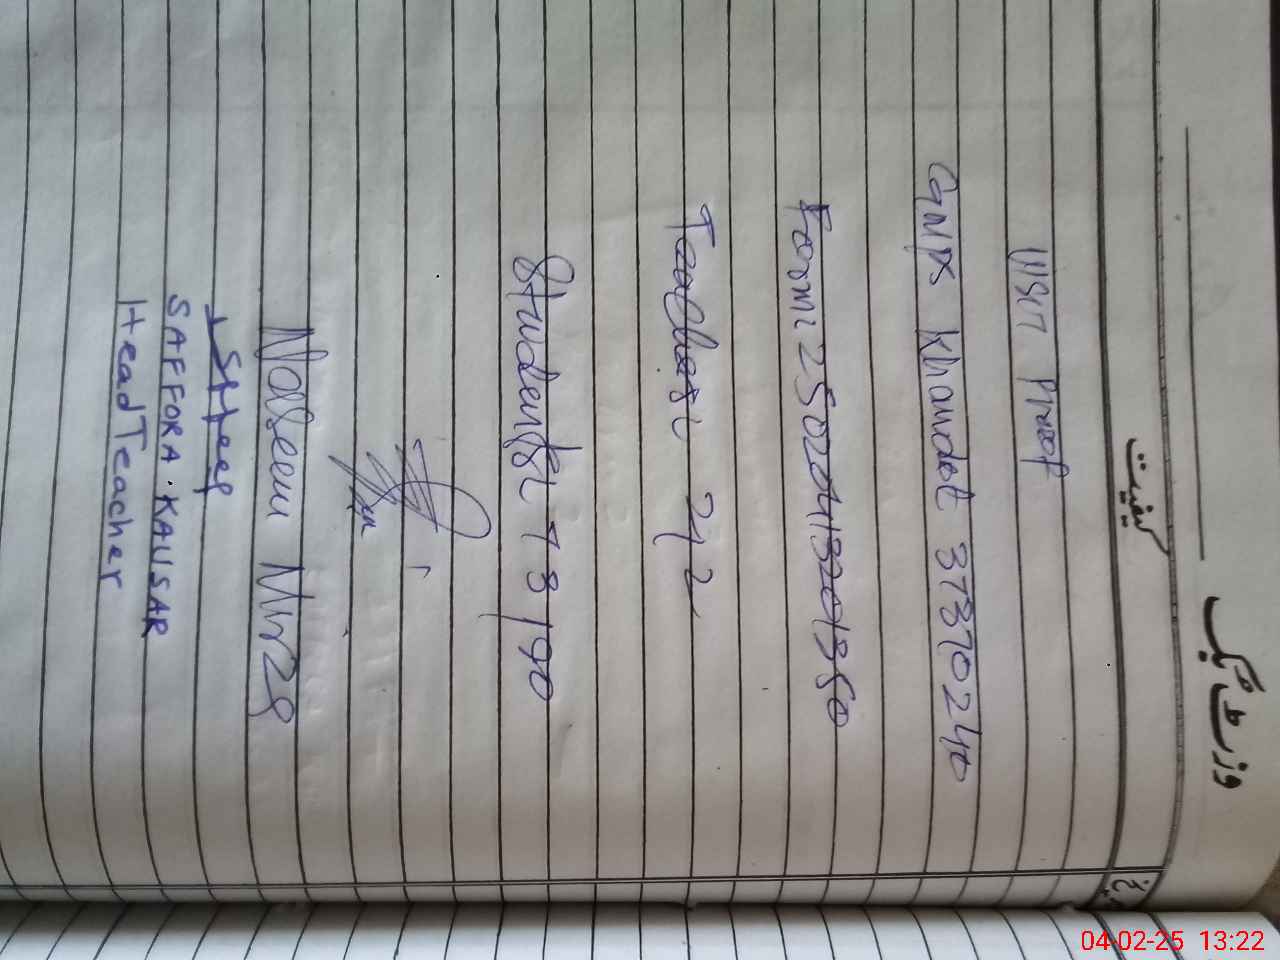 وزٹ بک
کیفیت
Visit Proof
GMPS Khandot 37370240
Form: 250204132013
Teachers: 2/2
Students: 78/90
Naseem Mirza
SAFFORA KAUSAR
Head Teacher
04-02-25 13:22